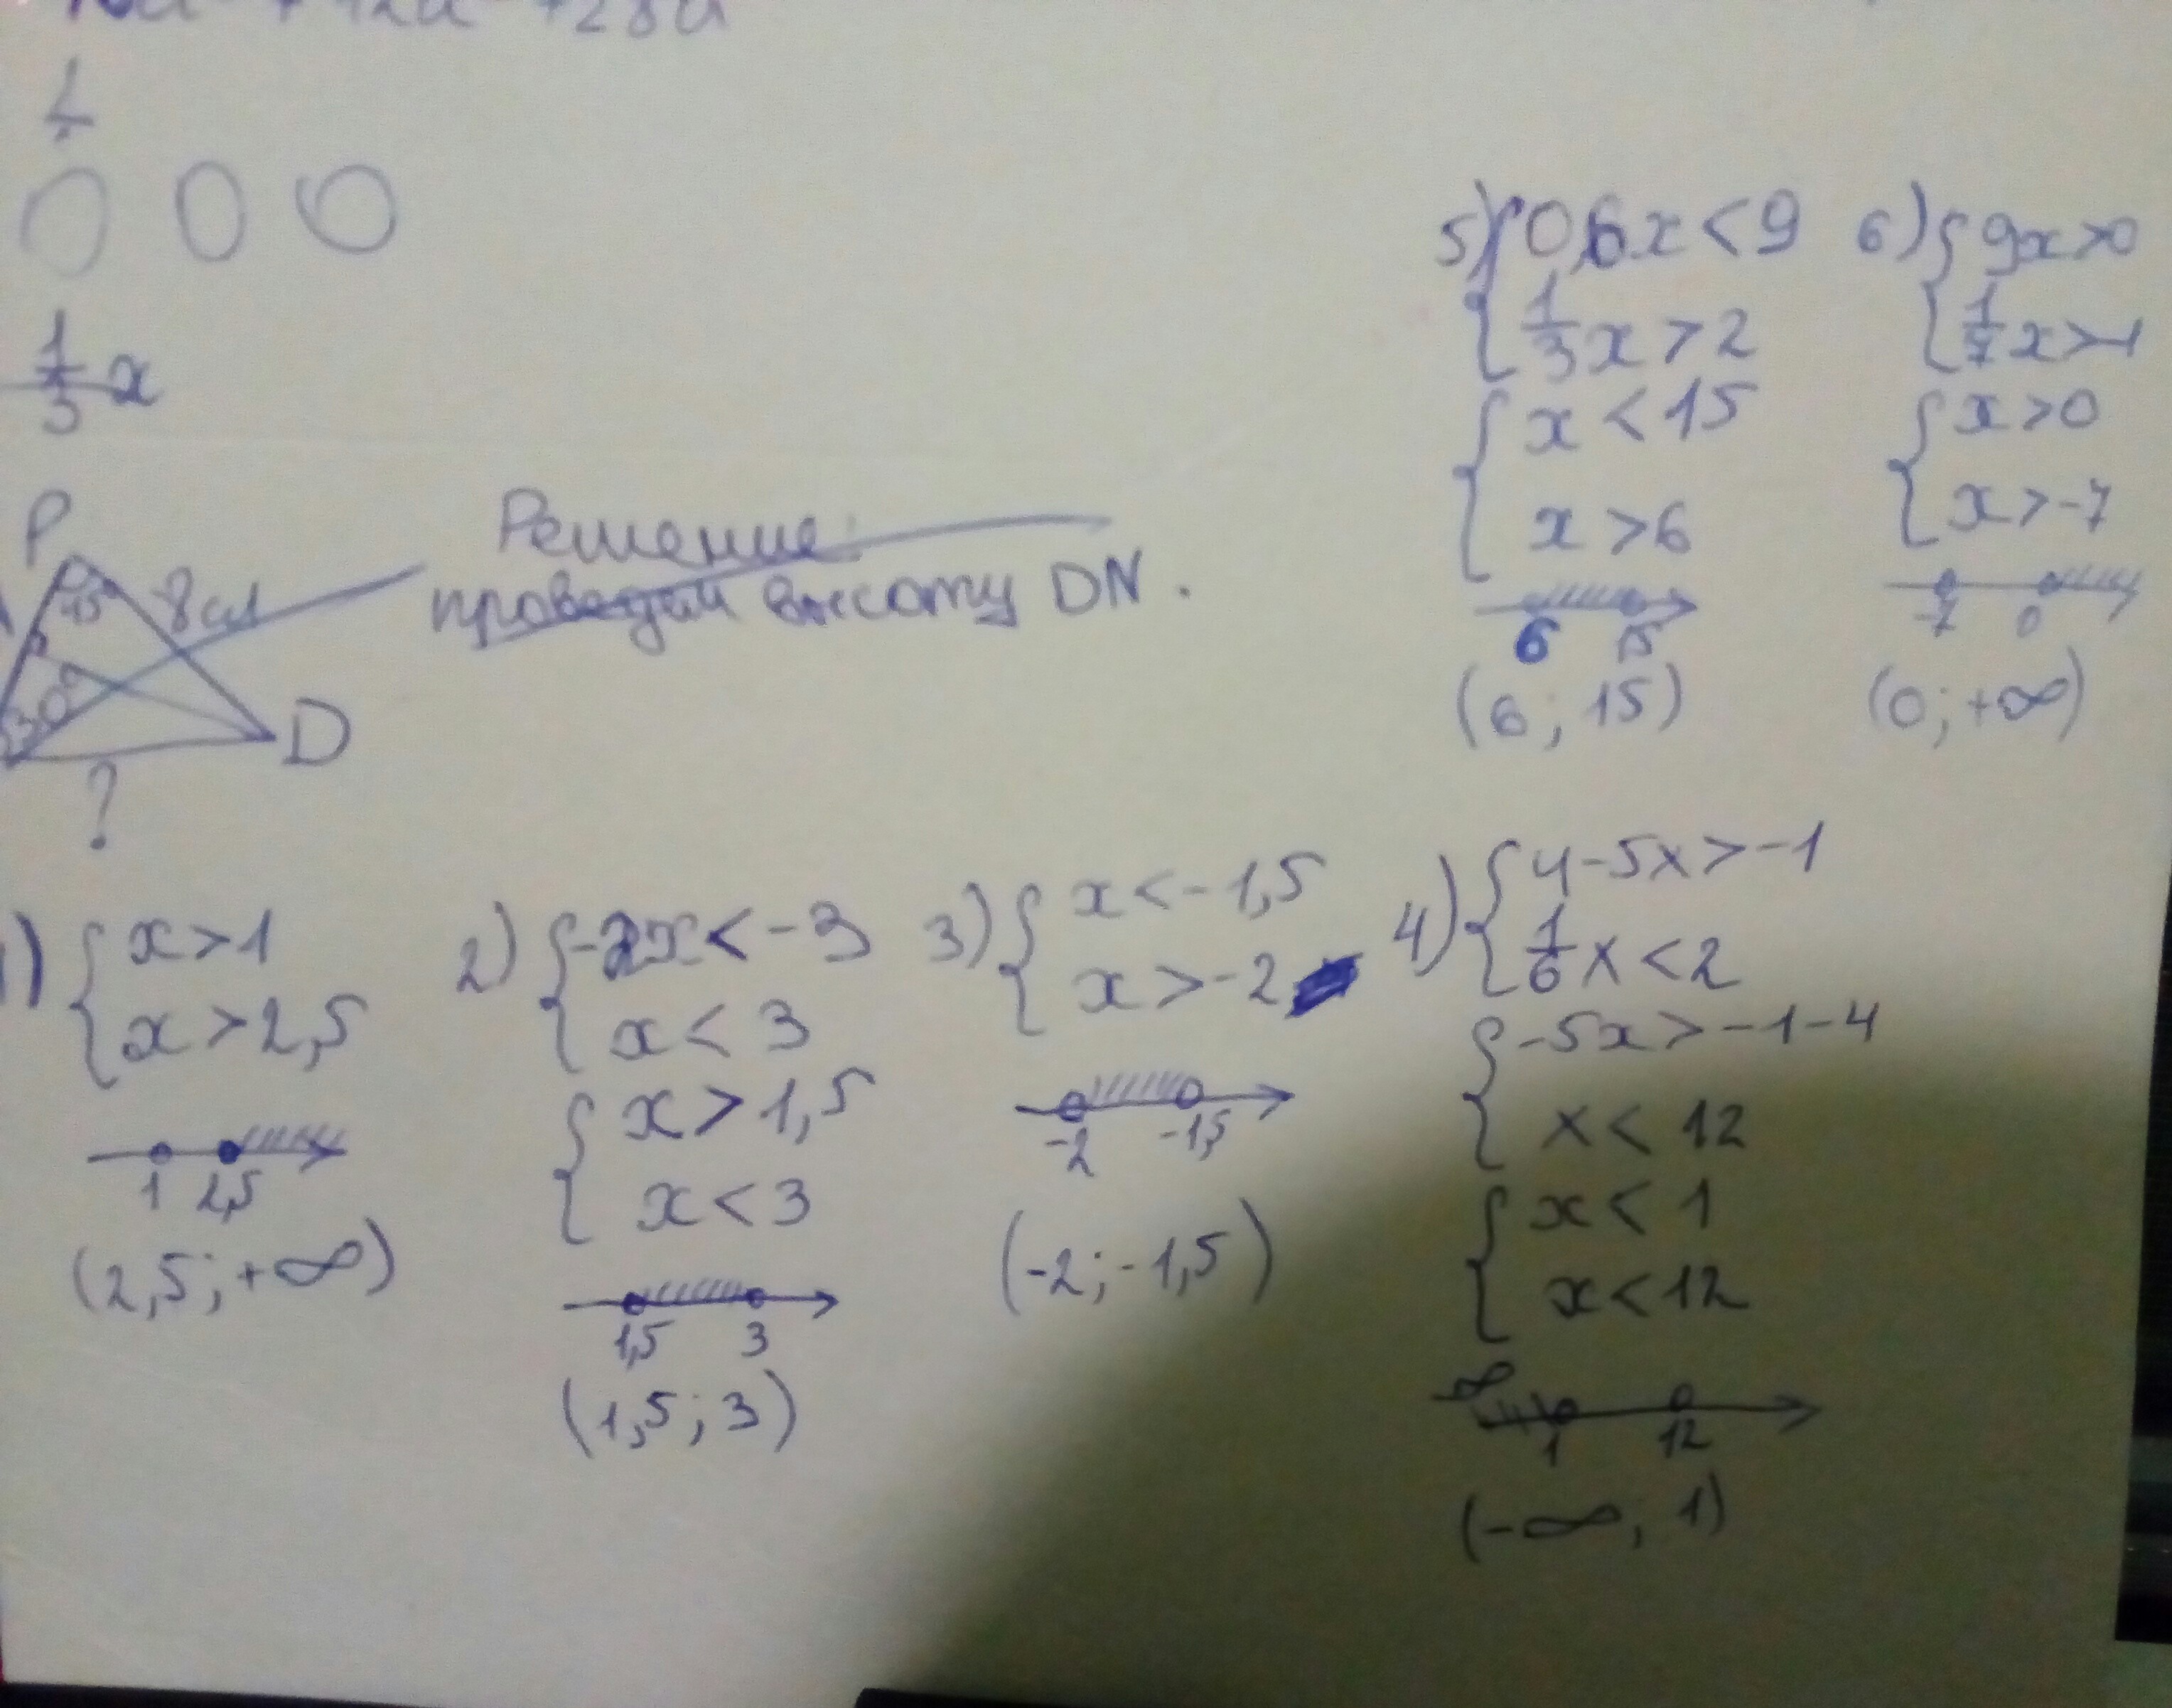 +28a
1/3 x
P
45
8см
30°
D
?
Решение:
проведём высоту DN.
5) { 0,6x < 9
1/3 x > 2
{ x < 15
x > 6
6 15
(6; 15)
6) { 9x > 0
1/7 x > -1
{ x > 0
x > -7
-7 0
(0; +∞)
1) { x > 1
x > 2,5
1 2,5
(2,5; +∞)
2) { -2x < -3
x < 3
{ x > 1,5
x < 3
1,5 3
(1,5; 3)
3) { x < -1,5
x > -2
-2 -1,5
(-2; -1,5)
4) { 4-5x > -1
1/6 x < 2
{ -5x > -1-4
x < 12
{ x < 1
x < 12
-∞
1 12
(-∞; 1)